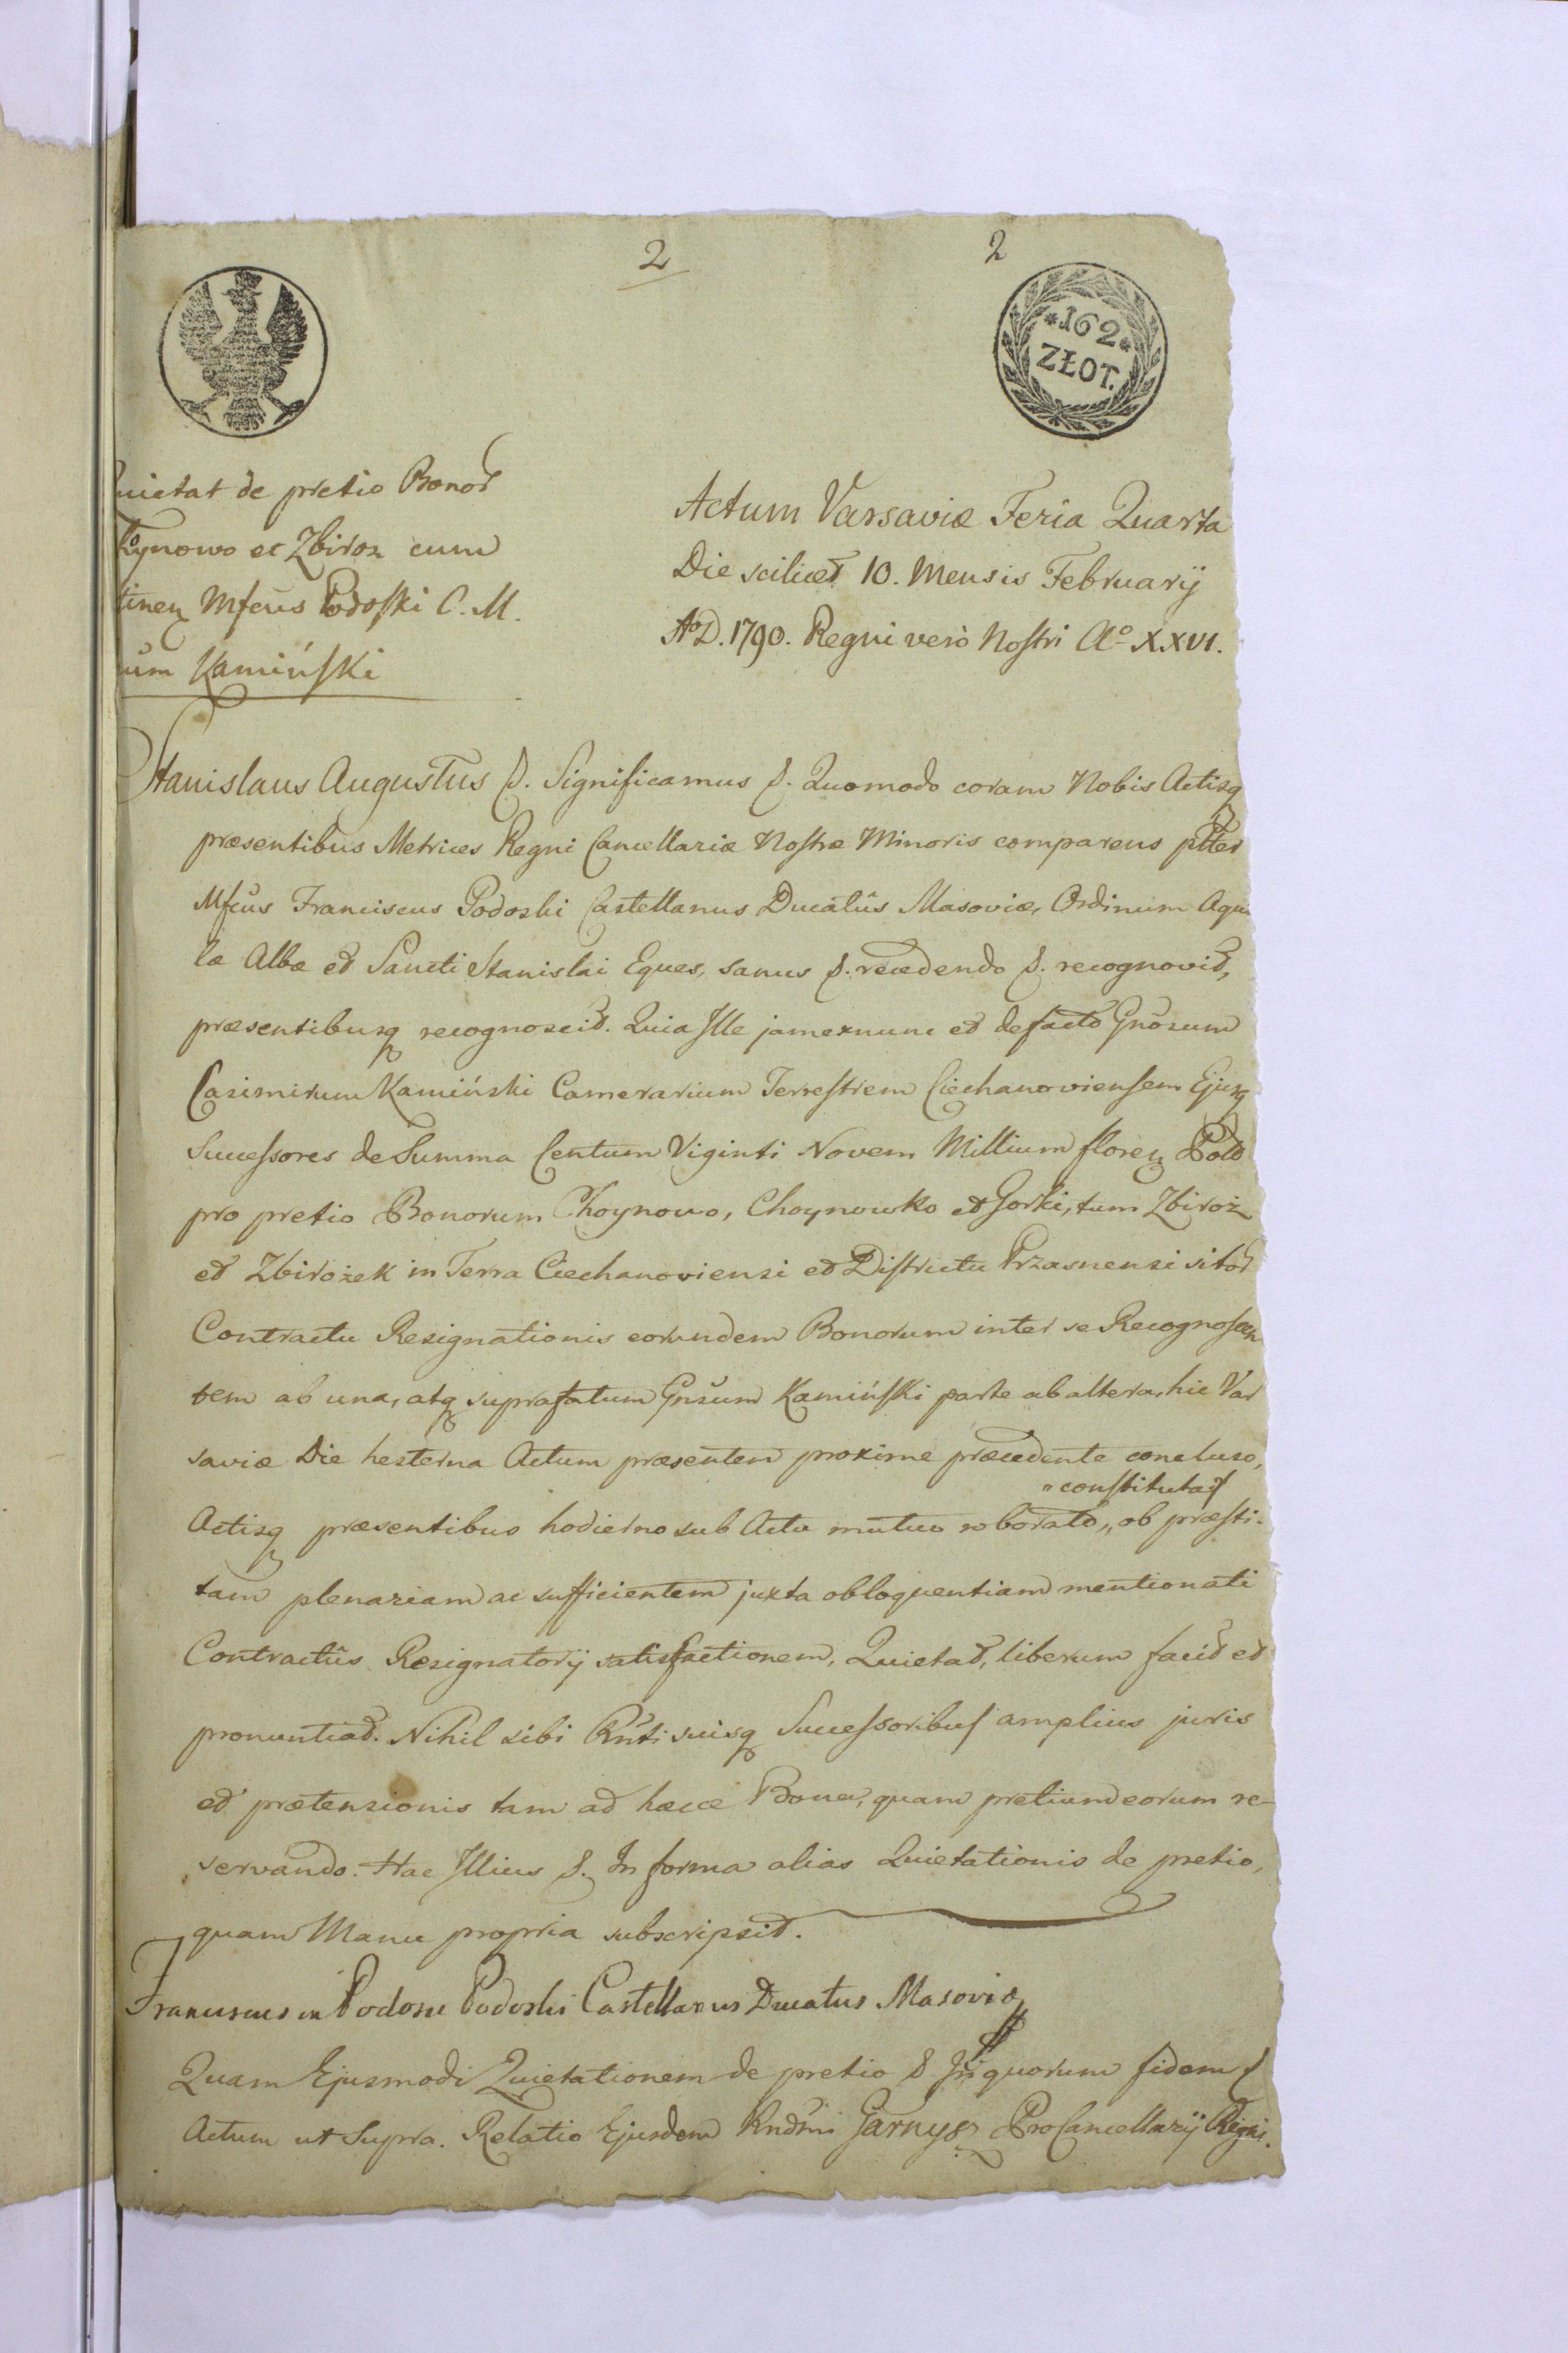 2
2
*162*
ZŁOT.
uietat de pretio Bonor
oynowo et Zbiroz cum
tinen Mfcus Podoski C. M.
um Kamiński
Actum Varsaviæ Feria Quarta
Die scilicet 10. Mensis Februarij
AoD. 1790. Regni verò Nostri Ao XXVI.
Stanislaus Augustus &. Significamus &. Quomodo coram Nobis Actisq
præsentibus Metrices Regni Cancellariæ Nostræ Minoris comparens pltter
Mfcus Franciscus Podoski Castellanus Ducatûs Masoviæ, Ordinum Aqui
læ Albæ et Sancti Stanislai Eques, sanus &. recedendo &. recognovit,
præsentibusq recognoscit. Quia Ille jamexnunc et defacto Gnosum
Casimirum Kamiński Camerarium Terrestrem Ciechanoviensem Ejusq
Successores de Summa Centum Viginti Novem Millium floren Polo
pro pretio Bonorum Choynowo, Choynowko et Gorki, tum Zbiroż
et Zbirożek in Terra Ciechanoviensi et Districtu Przasnensi sitor
Contractu Resignationis eorundem Bonorum inter se Recognoscen
tem ab una, atq suprafatum Gnsum Kamiński parte ab altera, hic Var
saviæ Die hesterna Actum præsentem proxime præcedente concluso,
" constitutas
Actisq præsentibus hodierno sub Actu mutuo roborato,, ob præsti-
tam plenariam ac sufficientem juxta obloquentiam mentionati
Contractûs Resignatorij satisfactionem, Quietat, liberum facit et
pronuntiat. Nihil sibi Rnti suisq Successoribus amplius juris
et prætensionis tam ad hæce Bona, quam pretium eorum re-
servando. Hac Illius &. In forma alias Quietationis de pretio,
quam Manu propria subscripsit.
Franciscus in Podosie Podoski Castellanus Ducatus Masoviæ
Quam Ejusmodi Quietationem de pretio & In quorum fidem &
Actum ut Supra. Relatio Ejusdem Rndmi Garnysz ProCancellarij Regni.